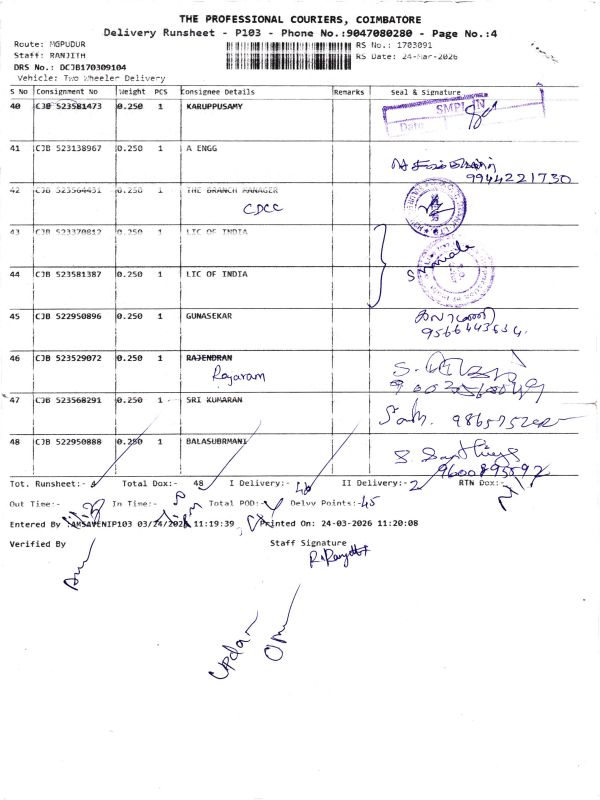 THE PROFESSIONAL COURIERS, COIMBATORE
Delivery Runsheet - P103 - Phone No.:9047080280 - Page No.:4
Route: MGPUDUR
RS No.: 1703091
Staff: RANJITH
RS Date: 24-Mar-2026
DRS No.: DCJB170309104
Vehicle: Two Wheeler Delivery
S No Consignment No Weight PCS Consignee Details Remarks Seal & Signature
40 CJB 523581473 0.250 1 KARUPPUSAMY
Date
41 CJB 523138967 0.250 1 A ENGG
9944221730
42 CJB 523564431 0.250 1 THE BRANCH MANAGER
CDCC
43 CJB 523370812 0.250 1 LIC OF INDIA
44 CJB 523581387 0.250 1 LIC OF INDIA
45 CJB 522950896 0.250 1 GUNASEKAR
46 CJB 523529072 0.250 1 RAJENDRAN
Rajaram
47 CJB 523568291 0.250 1 SRI KUMARAN
48 CJB 522950888 0.250 1 BALASUBRMANI
9600895592
Tot. Runsheet:- Total Dox:- 48 I Delivery:- 46 II Delivery:- 2 RTN Dox:-
Out Time:- In Time:- Total POD:- Delvy Points:- 45
Entered By :AMSAVENIP103 03/24/2026 11:19:39 Printed On: 24-03-2026 11:20:08
Verified By
Staff Signature